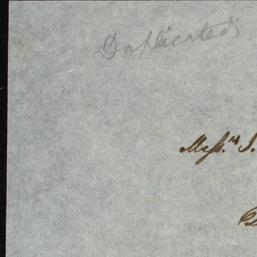 Duplicated
Messrs J.